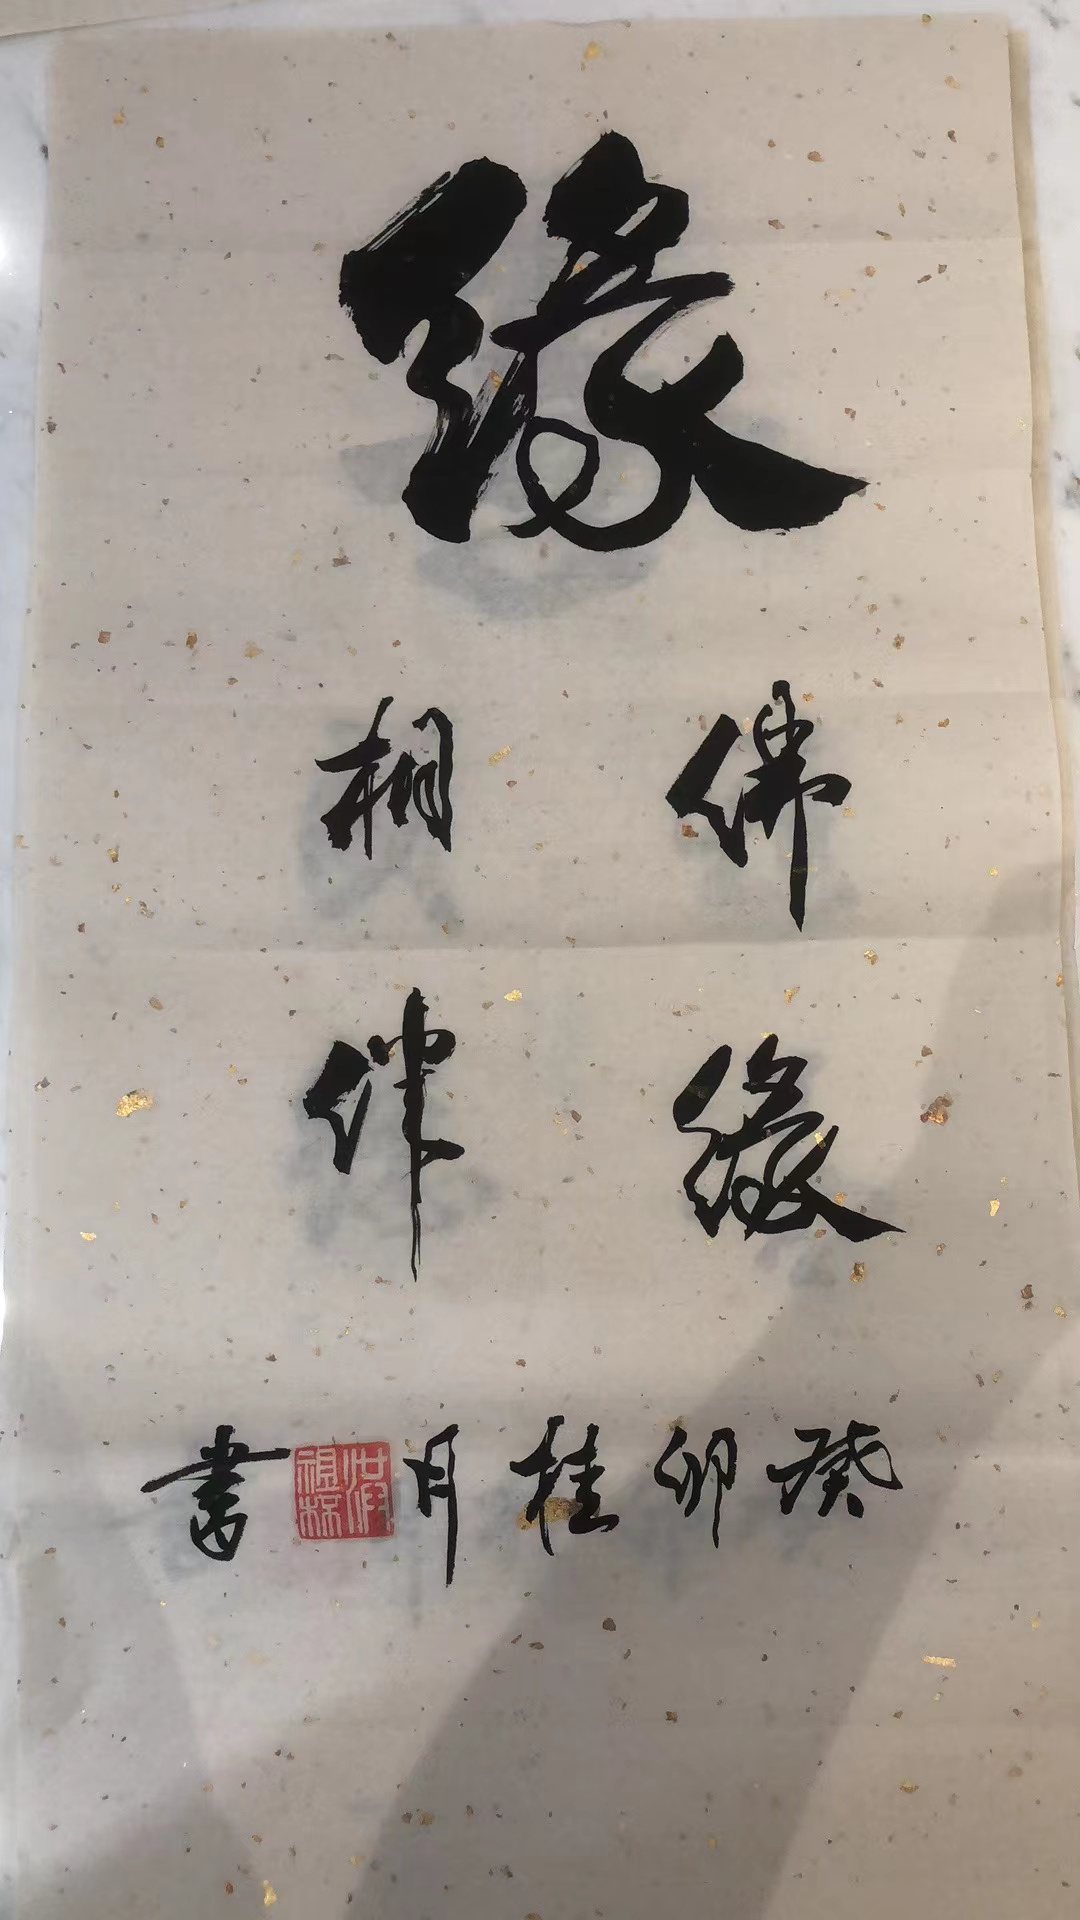 緣
佛緣
相伴
癸卯桂月
書